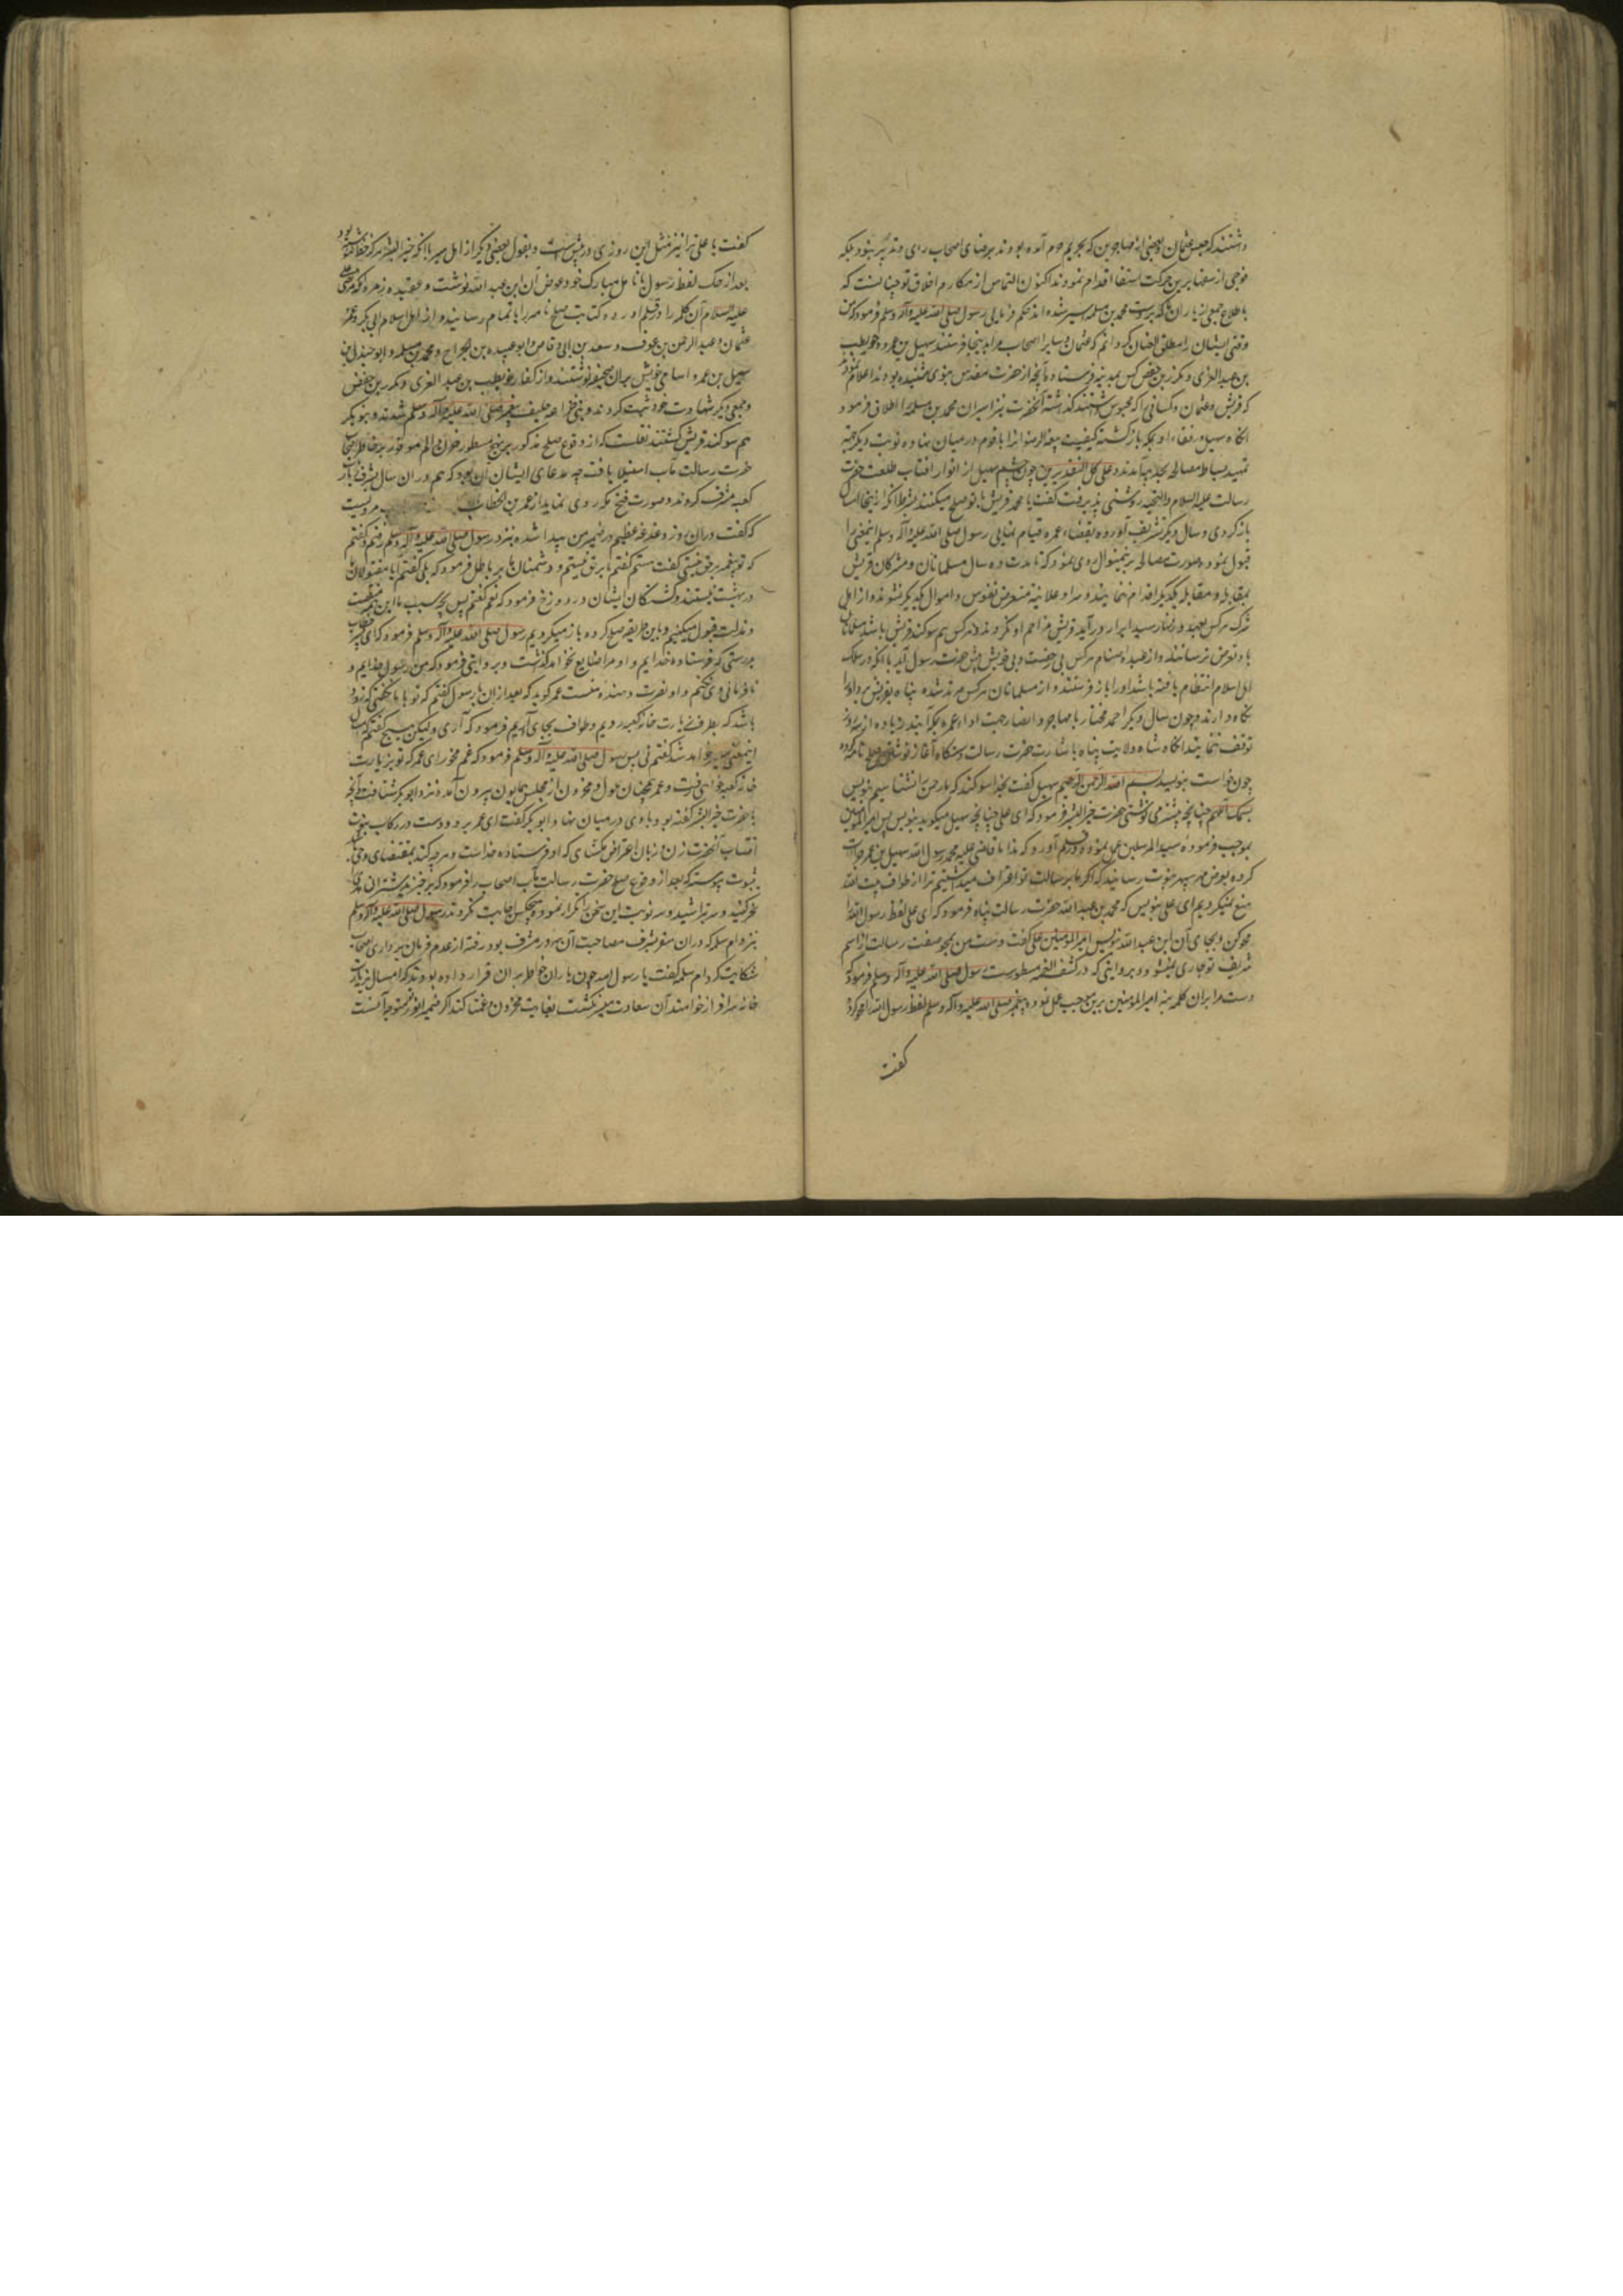 داشتند که حبس عثمان و بعضی از مهاجرین که بحریم حرم آمده بودند برضای اصحاب رای و تدبیر نبود بلکه
فوجی از سفها برین حرکت اقدام نمودند اکنون التماس از مکارم اخلاق تو چنانست که
جمعی از یاران ما که بدست محمد بن مسلمه اسیر شده اند حکم فرمایی رسول صلی الله علیه وآله وسلم فرمود که من
وقتی ایشان را مطلق العنان گردانم که عثمان و سایر اصحاب مرا بدینجا فرستند سهیل بن عمرو و حویطب
بن عبد العزی و مکرز بن حفص کس بمدینه فرستاده آنچه از حضرت مقدس نبوی شنیده بودند اعلام نمودند
که قریش عثمان و کسانی را که محبوس داشتند گذاشته آنحضرت نیز اسیران محمد بن مسلمه را اطلاق فرمود
آنگاه سهیل و رفقاء او بمکه بازگشته کیفیت بیعة الرضوان را با قوم در میان نهاده نوبت دیگر جهة
تمهید بساط مصالحه بحدیبیه آمدند و علی کل التقدیرین چون چشم سهیل از انوار افتاب طلعت حضرت
رسالت علیه السلام والتحیه روشنی پذیرفت گفت یا محمد قریش با تو صلح میکنند بشرط آنکه از اینجا امسال
بازگردی و سال دیگر تشریف آورده بقضاء عمره قیام نمایی رسول صلی الله علیه وآله وسلم اینمعنی را
قبول نمود و صورت مصالحه برینمنوال روی نمود که تا مدت ده سال مسلمانان و مشرکان قریش
بمقاتله و مقابله یکدیگر اقدام ننمایند و سرا و علانیة متعرض نفوس و اموال یکدیگر نشوند و از اهل
شرک هر کس بعهد و زنهار سید ابرار درآید قریش مزاحم او نگردند و هر کس هم سوگند قریش باشد مسلمانان
باو تعرض نرسانند و از عبده اصنام هر کس بی رخصت ولی خویش پیش حضرت رسول آید با آنکه در سلک
اهل اسلام انتظام یافته باشد او را باز فرستند و از مسلمانان هر کس مرتد شده پناه بقریش برد او را
نگاه دارند و چون سال دیگر احمد مختار با مهاجر و انصار جهت اداء عمره بمکه آیند زیاده از سه روز
توقف ننمایند آنگاه شاه ولایت پناه باشارت حضرت رسالت دستگاه آغاز نوشتن صلح نامه کرده
چون خواست بنویسد بسم الله الرحمن الرحیم سهیل گفت بخدا سوگند که ما رحمن را نشناسیم بنویس
بسمک اللهم چنانچه پیشتر می نوشتی حضرت خیر البشر فرمود که ای علی چنانچه سهیل میگوید بنویس پس امیر المومنین
بموجب فرموده سید المرسلین عمل نموده در قلم آورد که هذا ما قاضی علیه محمد رسول الله سهیل بن عمرو جرات
کرده بعرض مهر سپهر نبوت رسانید که اگر ما برسالت تو اعتراف میداشتیم ترا از طواف بیت الله
منع نمیکردیم ای علی بنویس که محمد بن عبد الله حضرت رسالت پناه فرمود که ای علی لفظ رسول الله را
محو کن و بجای آن ابن عبد الله بنویس امیر المومنین علی گفت دست من بمحو صفت رسالت از اسم
شریف تو جاری نمیشود و بروایتی که در کشف الغمه مسطورست رسول صلی الله علیه وآله وسلم فرمود که
دست مرا بران کلمه نه امیر المومنین برین موجب عمل نموده پیغمبر صلی الله علیه وآله وسلم لفظ رسول الله را محو کرد و
گفت
گفت یا علی ترا نیز مثل این روزی در پیش است و بقول بعضی دیگر از اهل سیر با آنکه خیر البشر هرگز خط ننوشته بود
بعد از حک لفظ رسول بانامل مبارک خود عوض آن ابن عبد الله نوشت و بعقیده زمره که مرتضی علی
علیه السلام آن کلمه را در قلم آورده کتابت صلح نامه را باتمام رسانید و از اهل اسلام ابی بکر و عمر و
عثمان و عبد الرحمن بن عوف و سعد بن ابی وقاص و ابو عبیده بن الجراح و محمد بن مسلمه و ابو جندل بن
سهیل بن عمرو اسامی خویش بران صحیفه نوشتند و از کفار حویطب بن عبد العزی و مکرز بن حفص
و جمعی دیگر شهادت خود ثبت کردند و بنی خزاعه حلیف پیغمبر صلی الله علیه وآله وسلم شدند و بنو بکر
هم سوگند قریش گشتند نقلست که از وقوع صلح مذکور برین نهج مسطور حزن و الم موفور بر خاطر اصحاب
حضرت رسالت مآب استیلا یافت چه مدعای ایشان آن بود که هم دران سال بشرف زیارت
کعبه مشرف گردند و صورت فتح مکه روی نماید از عمر بن الخطاب مرویست
که گفت دران روز دغدغه عظیم در ضمیر من پیدا شده بنزد رسول صلی الله علیه وآله وسلم رفتم و گفتم
که تو پیغمبر برحق نیستی گفت هستم گفتم ما برحق نیستیم و دشمنان ما بر باطل فرمود که بلی گفتم آیا مقتولان ما
در بهشت نیستند و کشتگان ایشان در دوزخ فرمود که نعم گفتم پس بچه سبب ما این همه منقصت
و مذلت قبول میکنیم و باین طریقه صلح کرده باز میگردیم رسول صلی الله علیه وآله وسلم فرمود که ای پسر خطاب
بدرستی که فرستاده خدایم و او مرا ضایع نخواهد گذاشت و بروایتی فرمود که من رسول خدایم و
نافرمانی وی نکنم و او نصرت دهنده منست عمر گوید که بعد ازان با رسول گفتم که تو با ما نگفتی که زود
باشد که بطرف زیارت خانه کعبه رویم و طواف بجای آریم فرمود که آری ولیکن هیچ گفتم که امسال
اینمعنی میسر خواهد شد گفتم نی پس رسول صلی الله علیه وآله وسلم فرمود که غم مخور ای عمر که تو بزیارت
خانه کعبه خواهی رفت و عمر همچنان ملول و محزون از مجلس همایون بیرون آمده نزد ابو بکر شتافت و آنچه
با حضرت خیر البشر گفته بود با وی در میان نهاد و ابو بکر گفت ای عمر برو و دست در رکاب نبوت
انتساب آنحضرت زن و زبان اعتراض مگشای که او فرستاده خداست و هر چه کند بمقتضای وحی
بثبوت پیوسته که بعد از وقوع صلح حضرت رسالت مآب اصحاب را فرمود که برخیزید شتران هدی را
نحر کنید و سر بتراشید و سه نوبت این سخن را تکرار نمود و هیچکس اجابت نکرد و رسول صلی الله علیه وآله وسلم
نزد ام سلمه که دران سفر بشرف مصاحبت آن سرور مشرف بود رفته از عدم فرمان برداری اصحاب
شکایت کرد ام سلمه گفت یا رسول الله چون یاران خاطر بران قرار داده بودند که امسال بزیارت
خانه سرافراز خواهند آن سعادت میسر نگشت بغایت محزون و غمناکند اگر ضمیر انور متوجه آنست